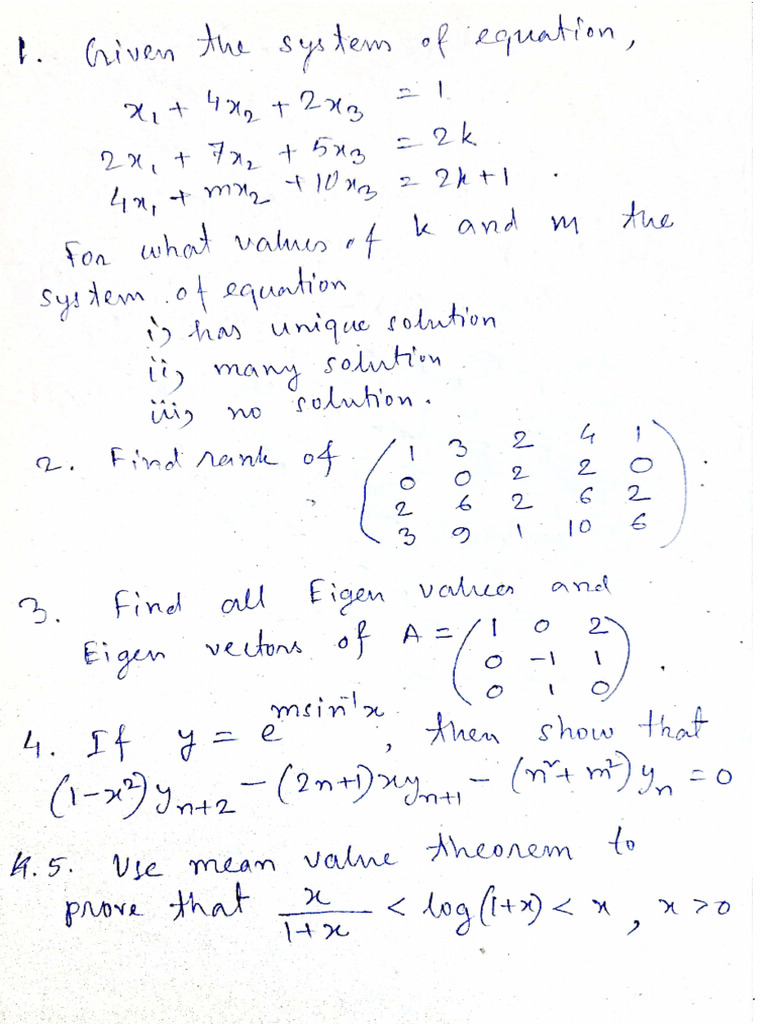 1. Given the system of equation,
x₁ + 4x₂ + 2x₃ = 1
2x₁ + 7x₂ + 5x₃ = 2k
4x₁ + mx₂ + 10x₃ = 2k+1
For what values of k and m the
system of equation
i) has unique solution
ii) many solution
iii) no solution.
2. Find rank of
1 3 2 4 1
0 0 2 2 0
2 6 2 6 2
3 9 1 10 6
3. Find all Eigen values and
Eigen vectors of A =
1 0 2
0 -1 1
0 1 0
4. If y = e^(m sin⁻¹x), then show that
(1-x²)yₙ₊₂ - (2n+1)xyₙ₊₁ - (n²+m²)yₙ = 0
5. Use mean value theorem to
prove that x/(1+x) < log(1+x) < x, x>0